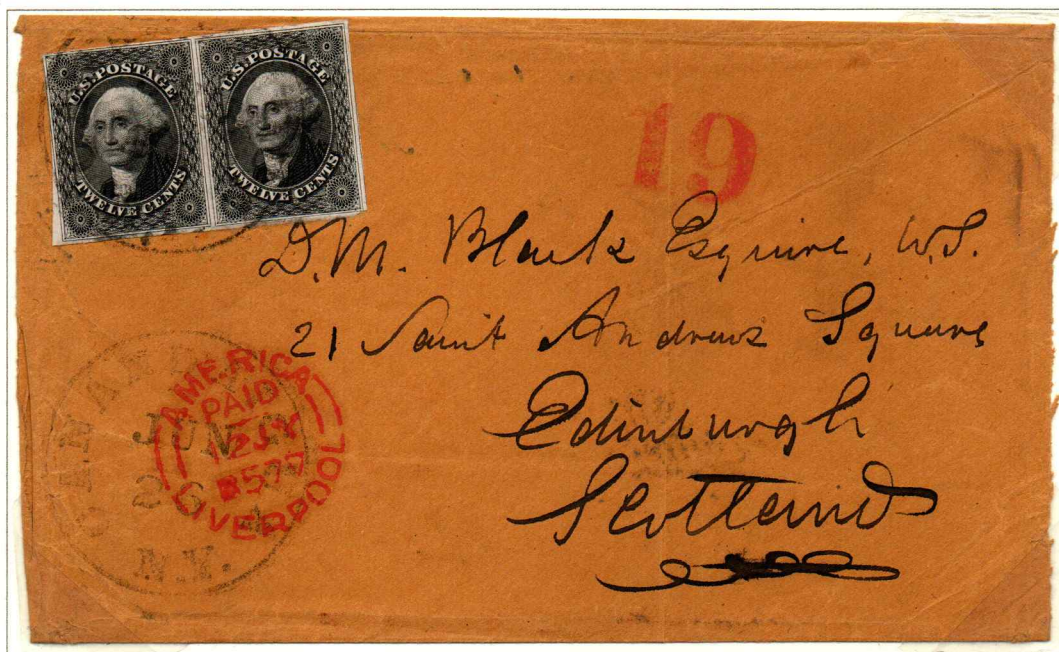 U.S. POSTAGE
TWELVE CENTS
U.S. POSTAGE
TWELVE CENTS
19
D. M. Black Esquire, W.S.
21 Saint Andrews Square
Edinburgh
Scotland
AMERICA
PAID
LIVERPOOL
JUN
N.Y.